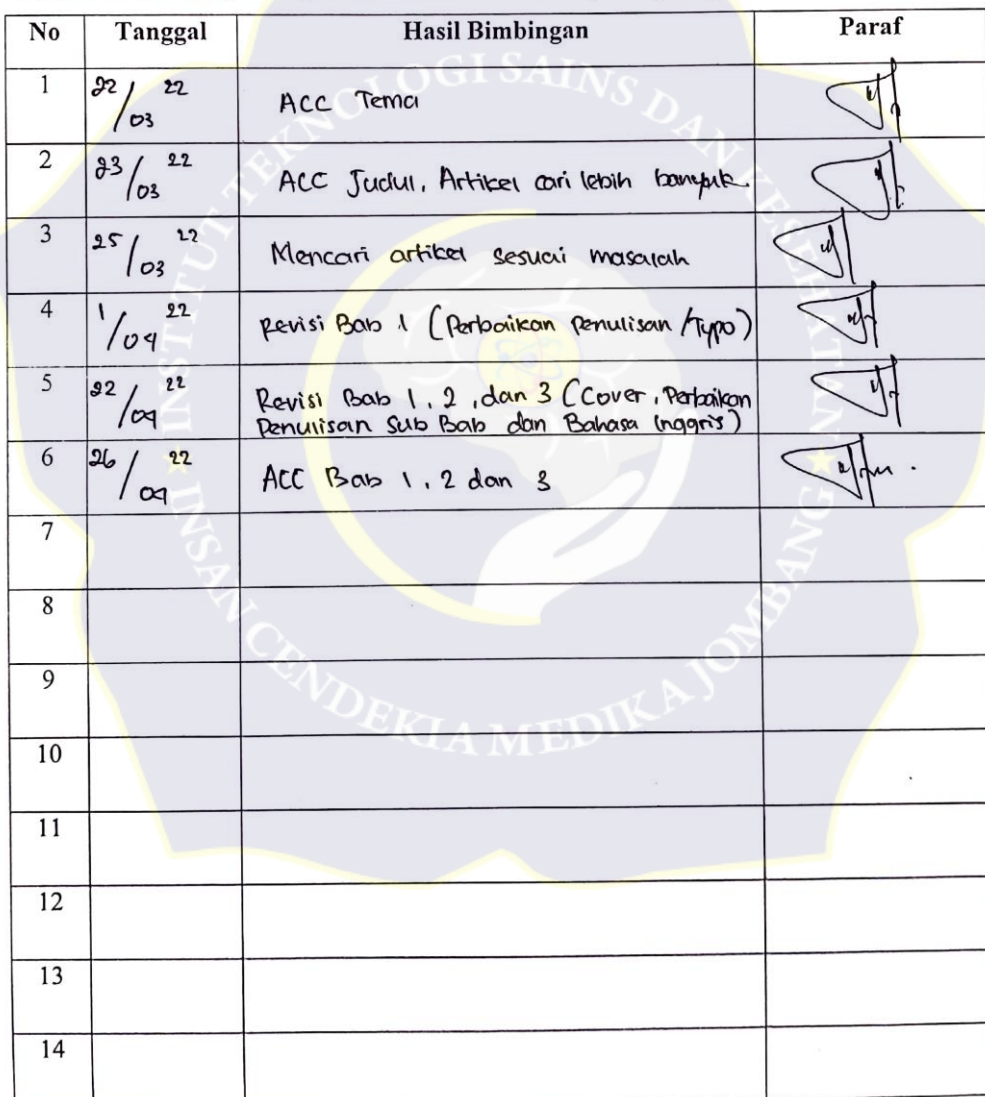 No Tanggal Hasil Bimbingan Paraf
1 22/03 22 ACC Tema
2 23/03 22 ACC Judul, Artikel cari lebih banyak.
3 25/03 22 Mencari artikel sesuai masalah
4 1/04 22 Revisi Bab 1 (Perbaikan Penulisan /Typo)
5 22/04 22 Revisi Bab 1, 2, dan 3 (Cover, Perbaikan
Penulisan Sub Bab dan Bahasa Inggris)
6 26/04 22 ACC Bab 1, 2 dan 3
7
8
9
10
11
12
13
14
INSTITUT TEKNOLOGI SAINS DAN KESEHATAN
INSAN CENDEKIA MEDIKA JOMBANG